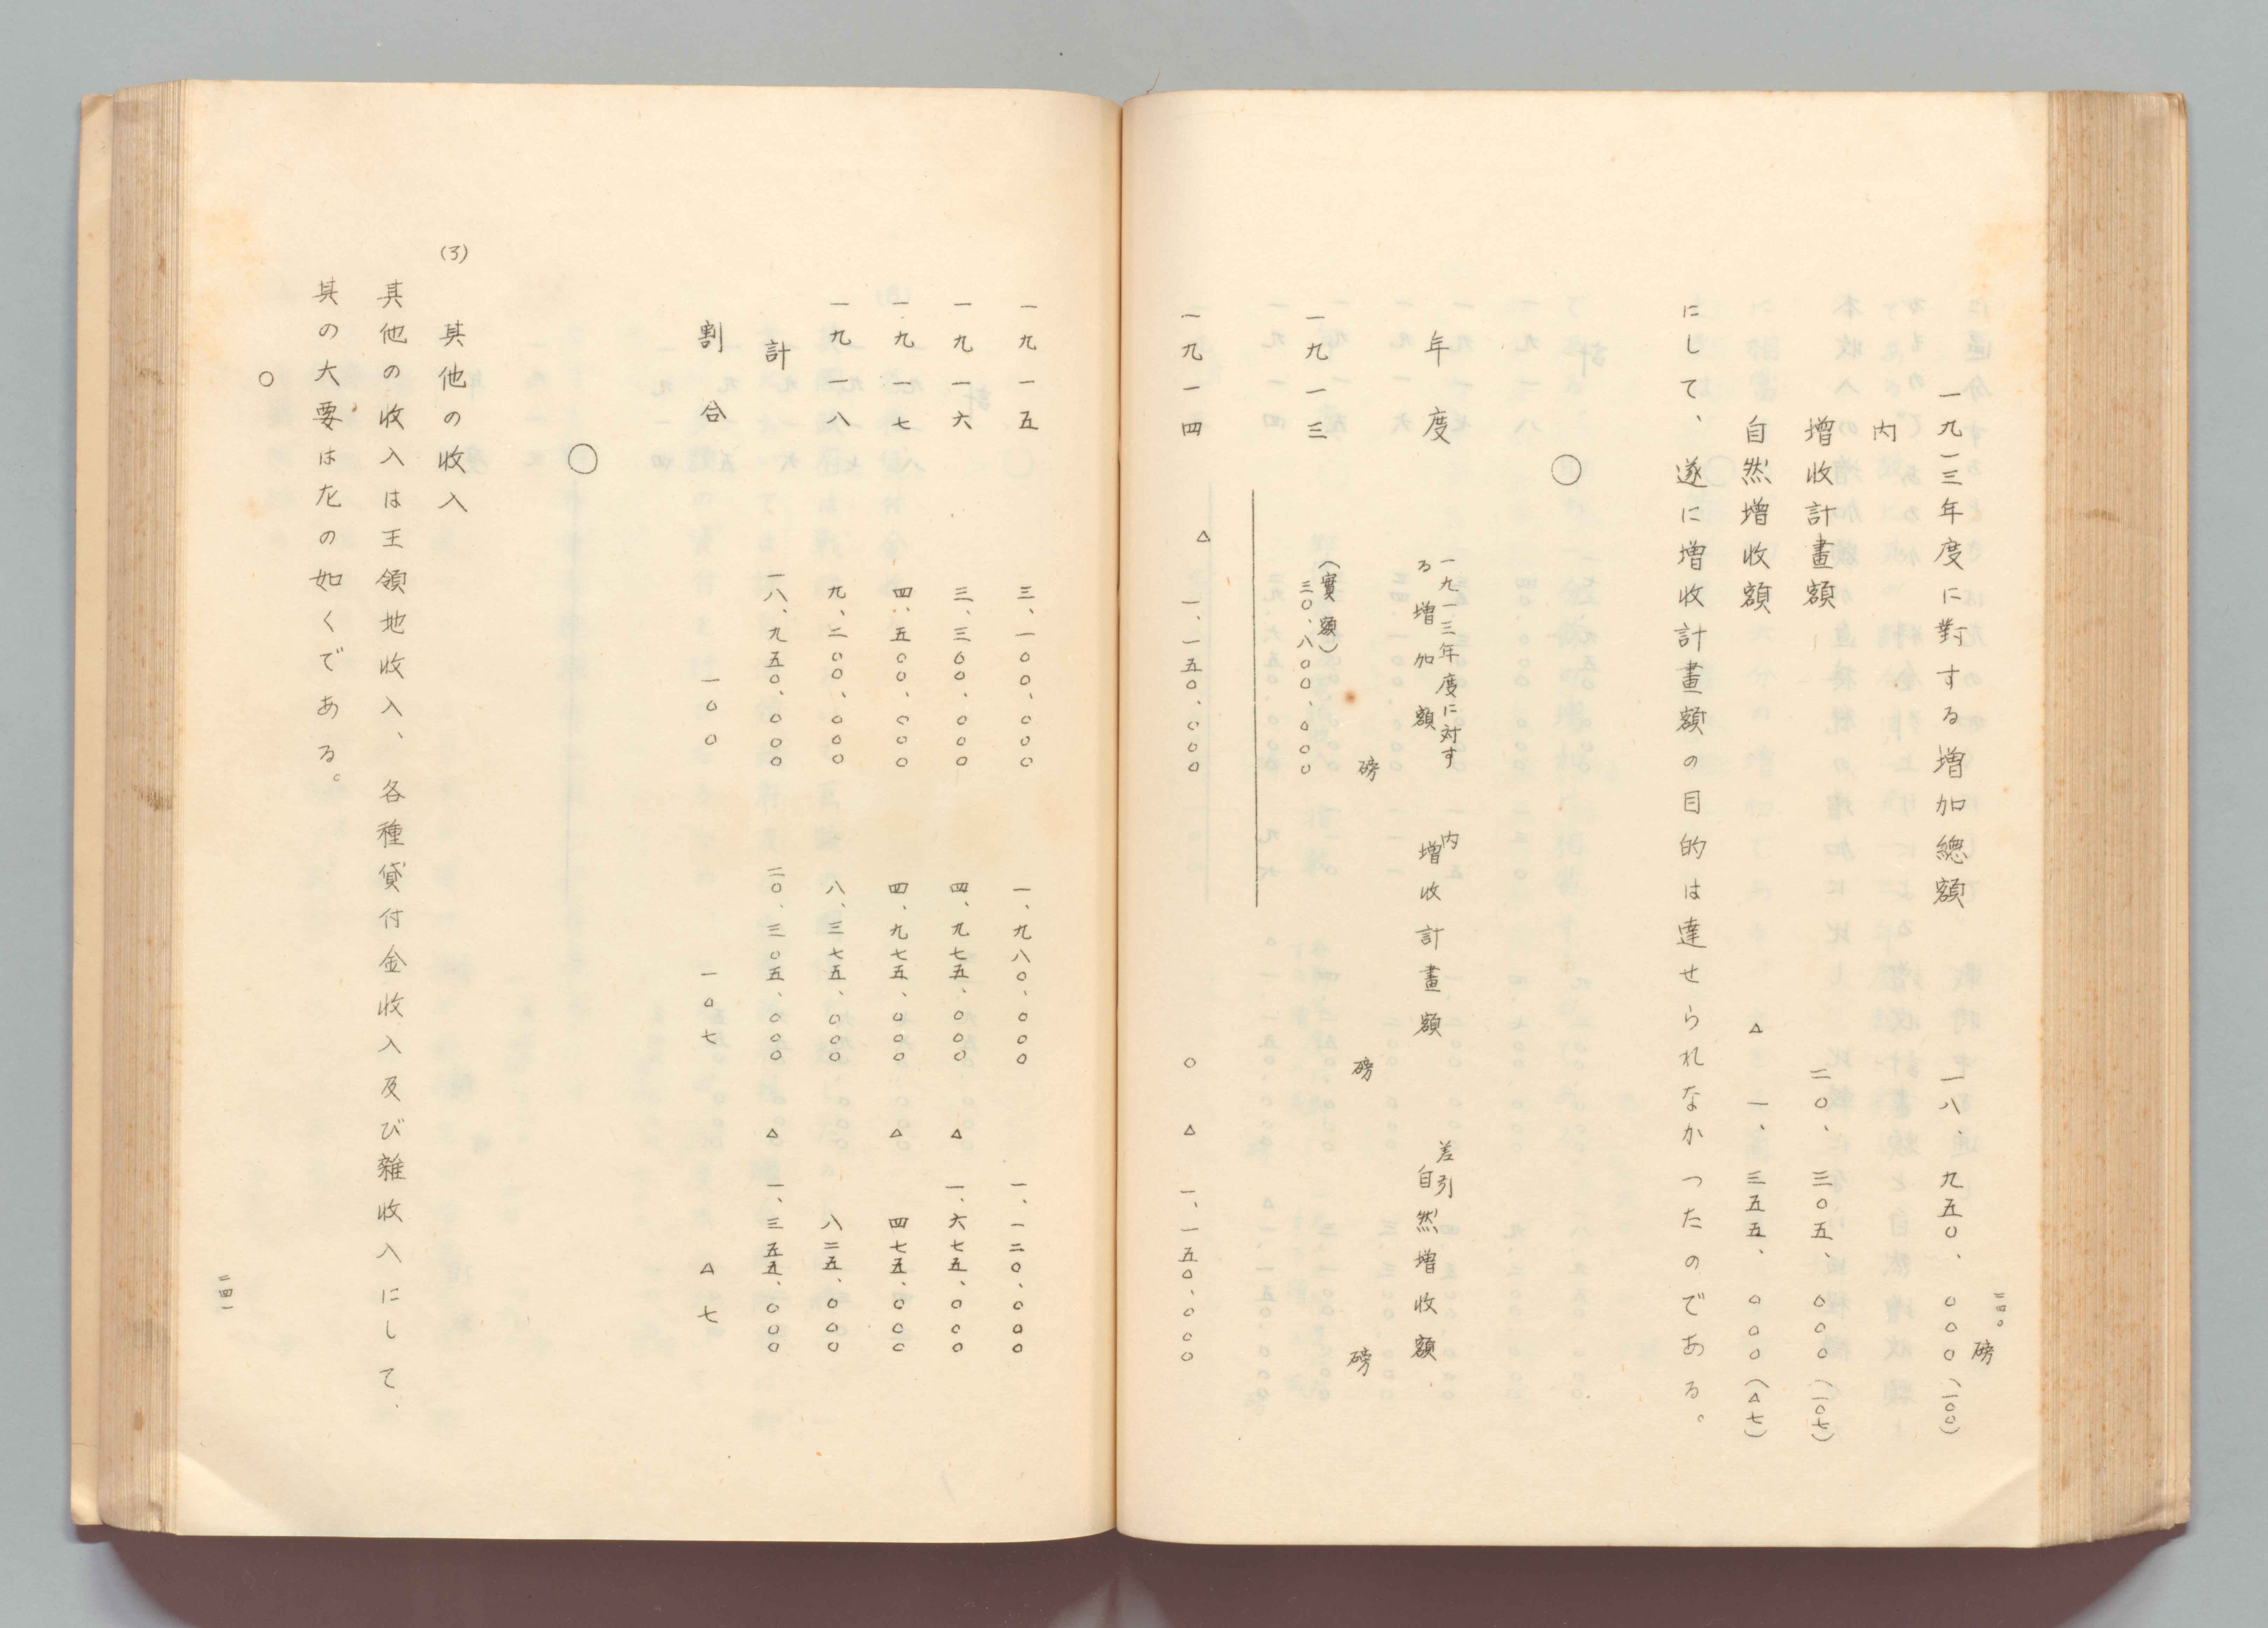 二四〇
磅
一九一三年度に對する增加總額　一八、九五〇、〇〇〇（一〇〇）
内
增收計畫額　二〇、三〇五、〇〇〇（一〇七）
自然增收額　△　一、三五五、〇〇〇（△七）
にして、遂に增收計畫額の目的は達せられなかつたのである。
〇
年度　一九一三年度に対する增加額　内增收計畫額　差引自然增收額
磅　磅　磅
一九一三　（實額）三〇、八〇〇、〇〇〇
一九一四　△　一、一五〇、〇〇〇　〇　△　一、一五〇、〇〇〇
一九一五　三、一〇〇、〇〇〇　一、九八〇、〇〇〇　一、一二〇、〇〇〇
一九一六　三、三〇〇、〇〇〇　四、九七五、〇〇〇　△　一、六七五、〇〇〇
一九一七　四、五〇〇、〇〇〇　四、九七五、〇〇〇　△　四七五、〇〇〇
一九一八　九、二〇〇、〇〇〇　八、三七五、〇〇〇　八二五、〇〇〇
計　一八、九五〇、〇〇〇　二〇、三〇五、〇〇〇　△　一、三五五、〇〇〇
割合　一〇〇　一〇七　△七
〇
(3)　其他の收入
其他の收入は王領地收入、各種貸付金收入及び雜收入にして、
其の大要は左の如くである。
〇
二四一